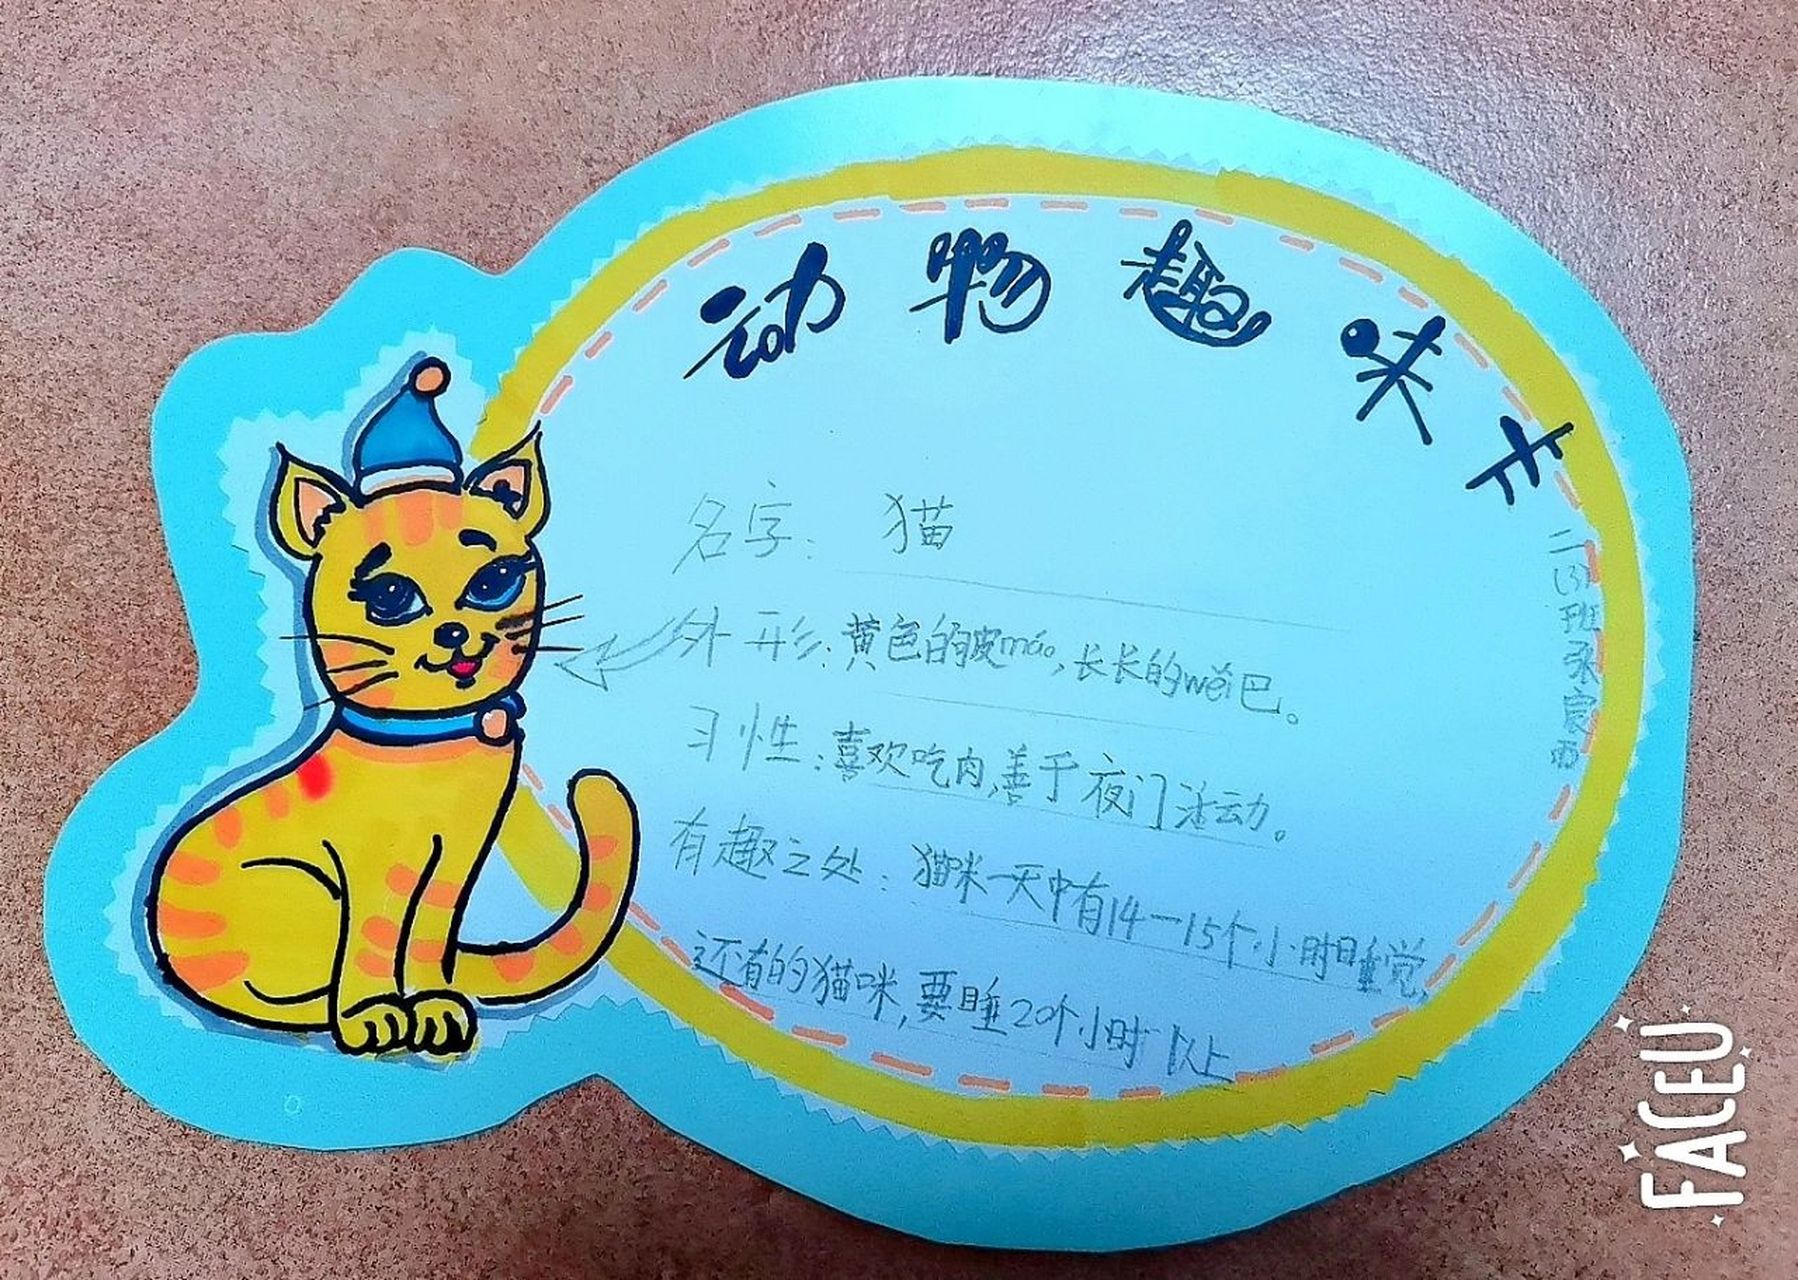 动物趣味卡
名字：猫
外形：黄色的皮máo，长长的wěi巴。
习性：喜欢吃肉，善于夜门活动。
有趣之处：猫咪一天中有14—15个小时睡觉，
还有的猫咪，要睡20个小时以上
二（3）班 宸雨
FACEU